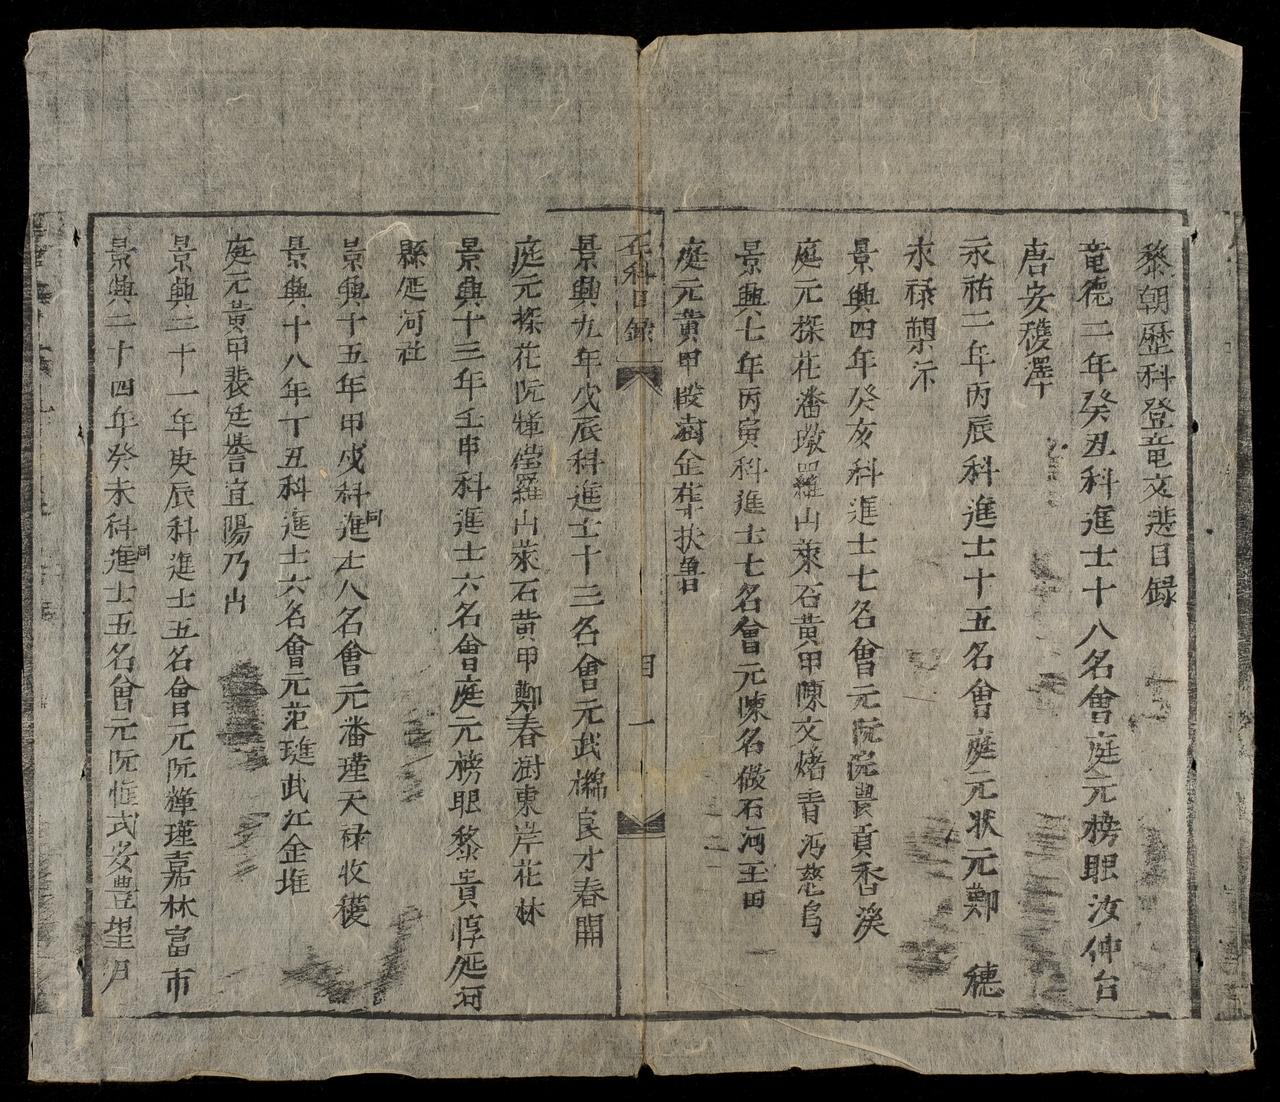 黎朝歷科登竜文选目録
竜德二年癸丑科進士十八名會庭元榜眼汝仲台
唐安穫澤
永祐二年丙辰科進士十五名會庭元状元鄭穗
永禄㮒沶
景興四年癸亥科進士七名會元阮院農貢香溪
庭元探花潘璥羅山萊石黄甲陳文煊青沔慈烏
景興七年丙寅科進士七名會元陳名做石河玉田
庭元黄甲段澍金華扶魯
名科目録
目
一
景興九年戊辰科進士十三名會元武檰良才春閘
庭元探花阮輝𠐓羅山萊石黄甲鄭春澍東岸花林
景興十三年壬申科進士六名會庭元榜眼黎貴惇延河
縣延河社
景興十五年甲戌科進同士八名會元潘瑾天禄收穫
景興十八年丁丑科進士六名會元范璡武江金堆
庭元黄甲裴廷譽宜陽乃山
景興二十一年庚辰科進士五名會元阮輝瑾嘉林富市
景興二十四年癸未科進同士五名會元阮惟弍安豊望月